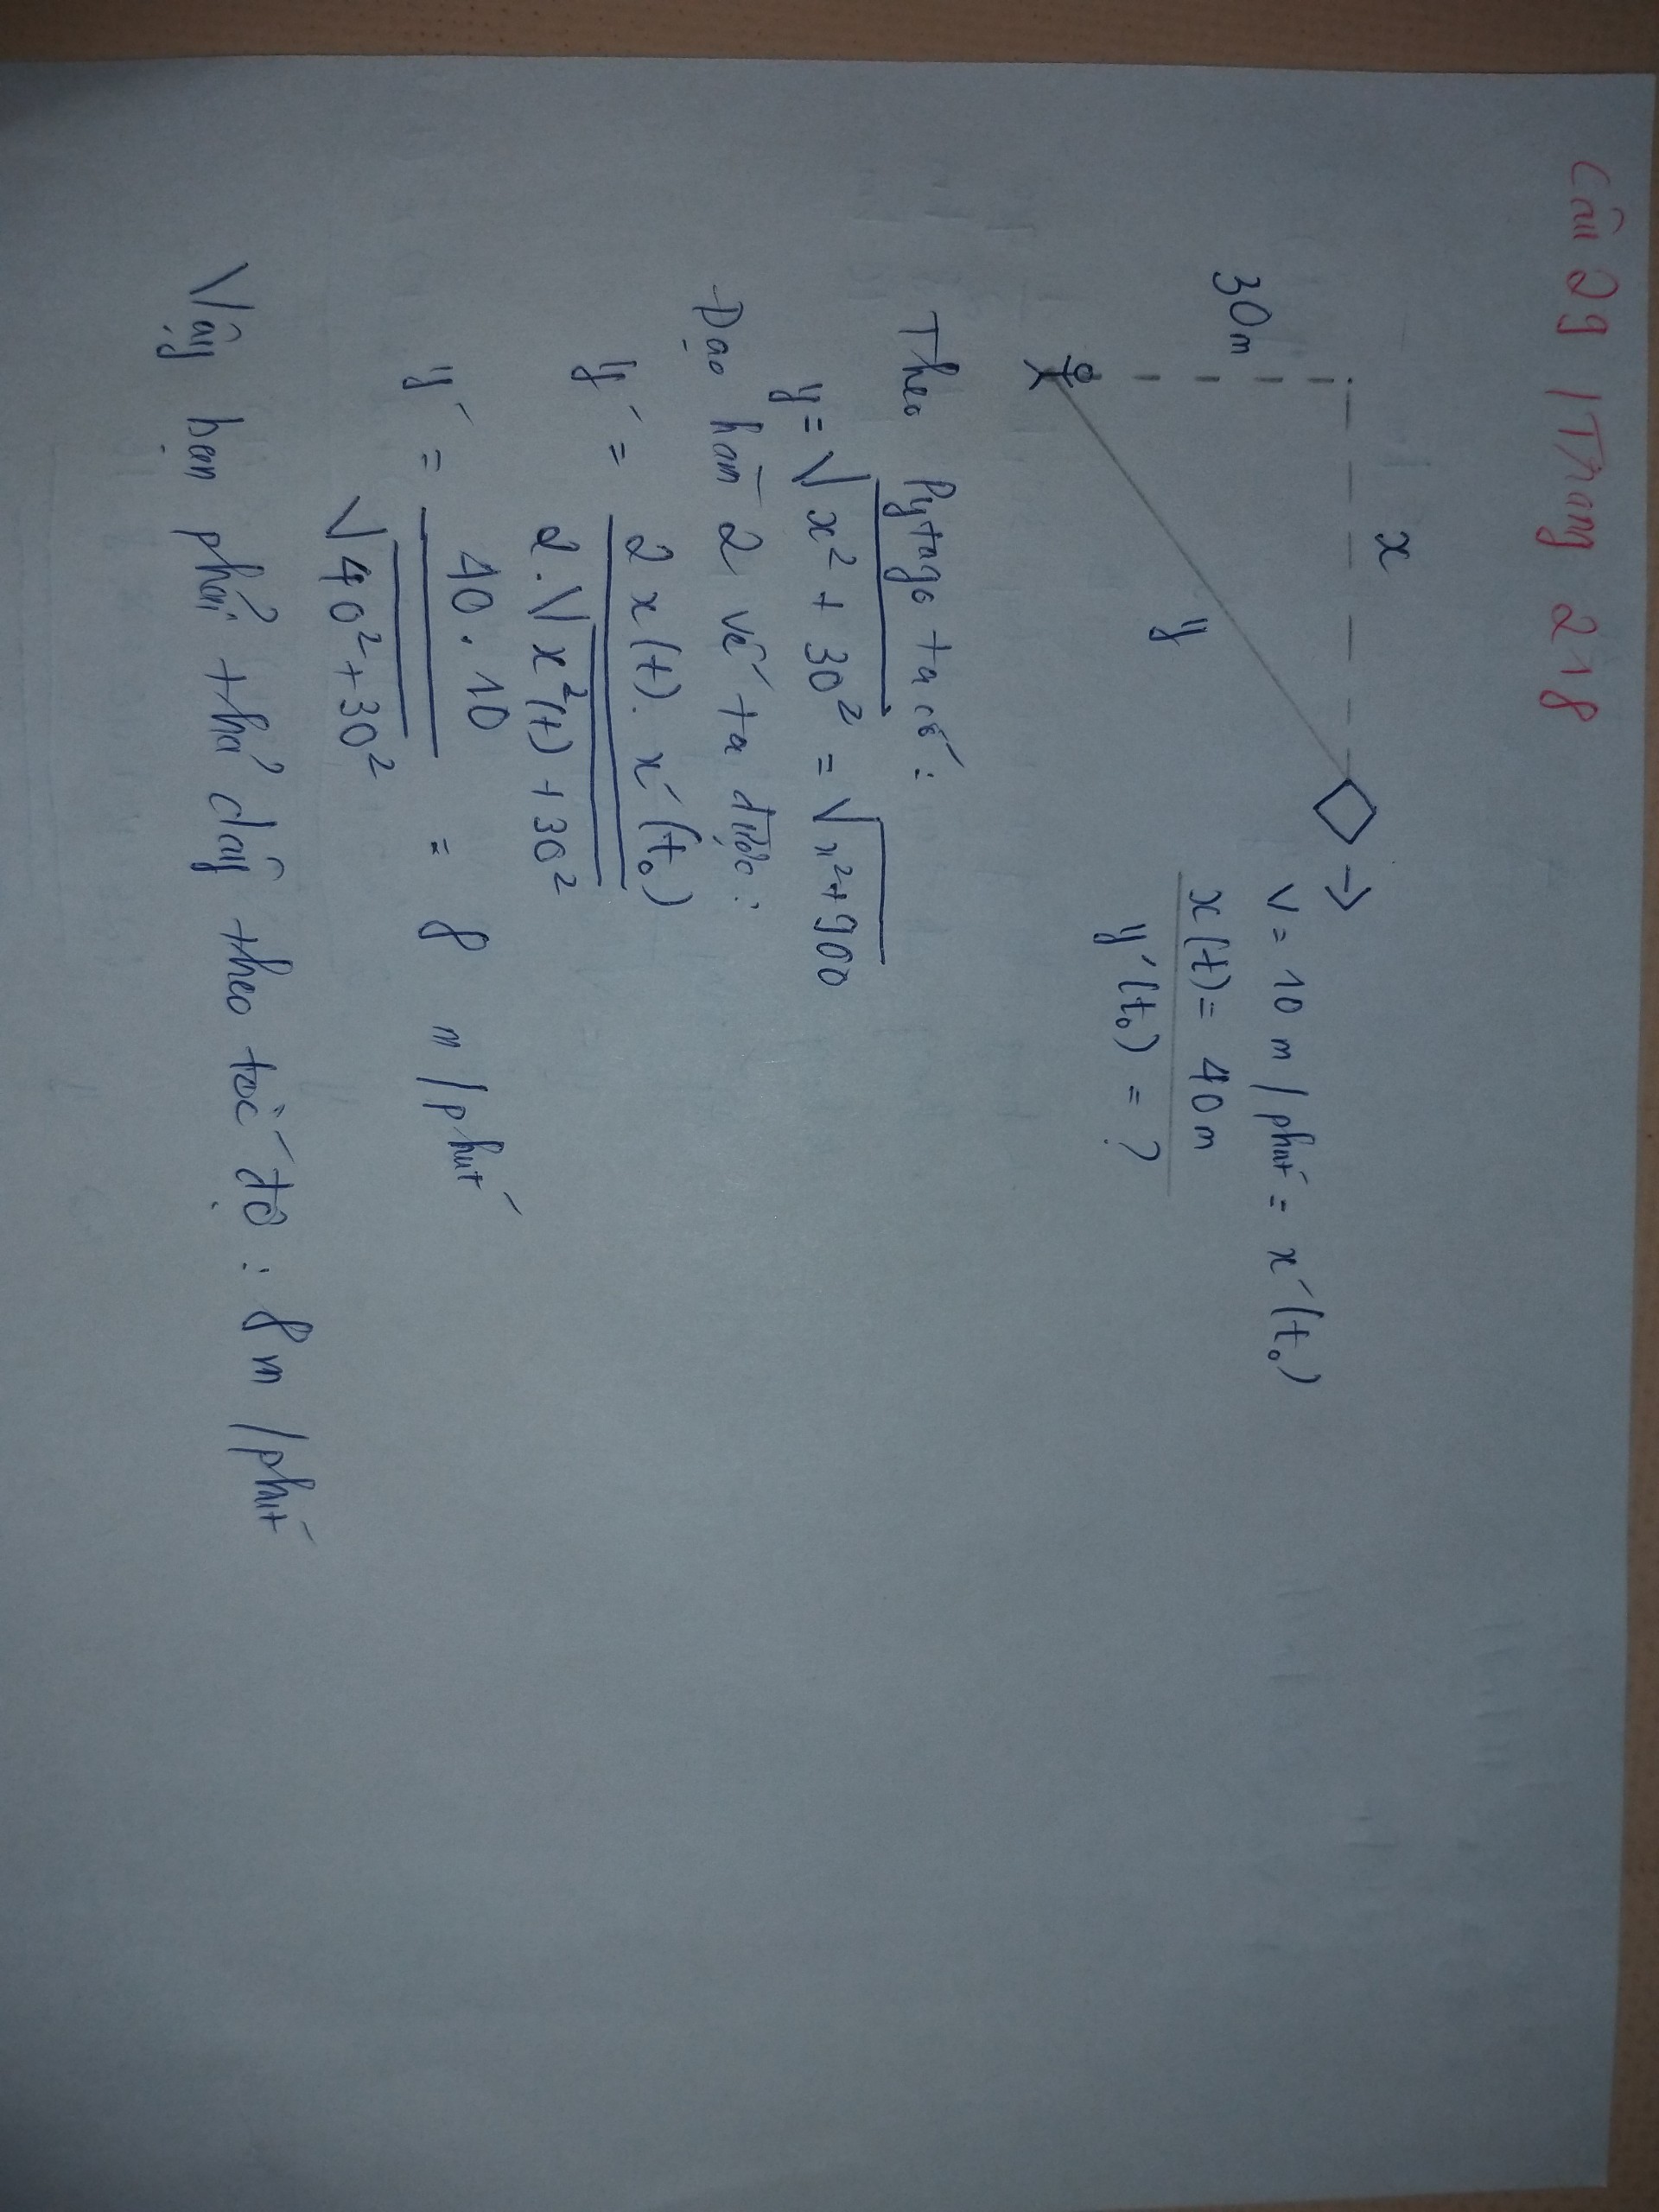 Câu 29 / Trang 218
x
30m
y
V = 10 m / phút = x'(t₀)
x(t) = 40m
y'(t₀) = ?
Theo Pytago ta có:
y = √(x² + 30²) = √(x² + 900)
Đạo hàm 2 vế ta được:
y' = (2x(t). x'(t₀)) / (2.√(x²(t) + 30²))
y' = (40 . 10) / √(40² + 30²) = 8 m / phút
Vậy bạn phải thả dây theo tốc độ : 8m / phút